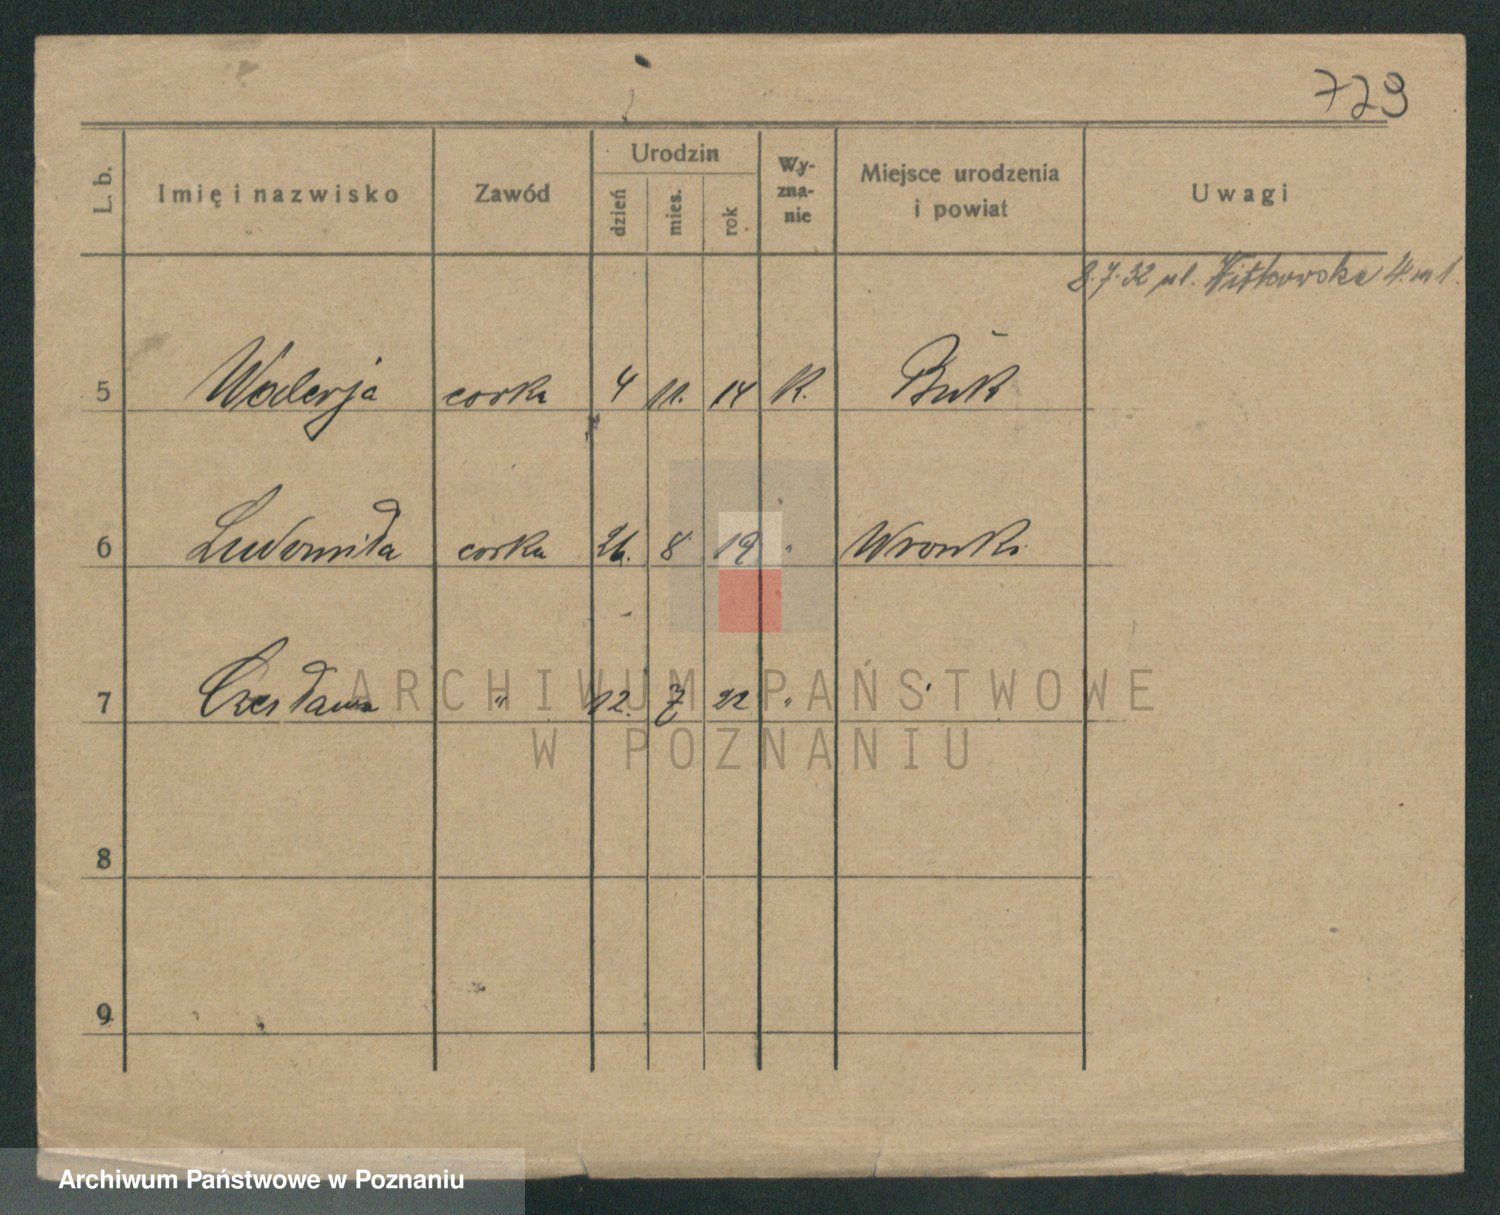 729
L. b. Imię i nazwisko Zawód Urodzin dzień mies. rok Wy-zna-nie Miejsce urodzenia i powiat Uwagi
8.7.32 ul. Witkowska 4. m 1.
5 Walerja corka 4 11. 14 K. Buk
6 Ludomiła corka 26. 8 19 " Wronki
7 Czesława " 12. 7 22 "
8
9
ARCHIWUM PAŃSTWOWE
W POZNANIU
Archiwum Państwowe w Poznaniu